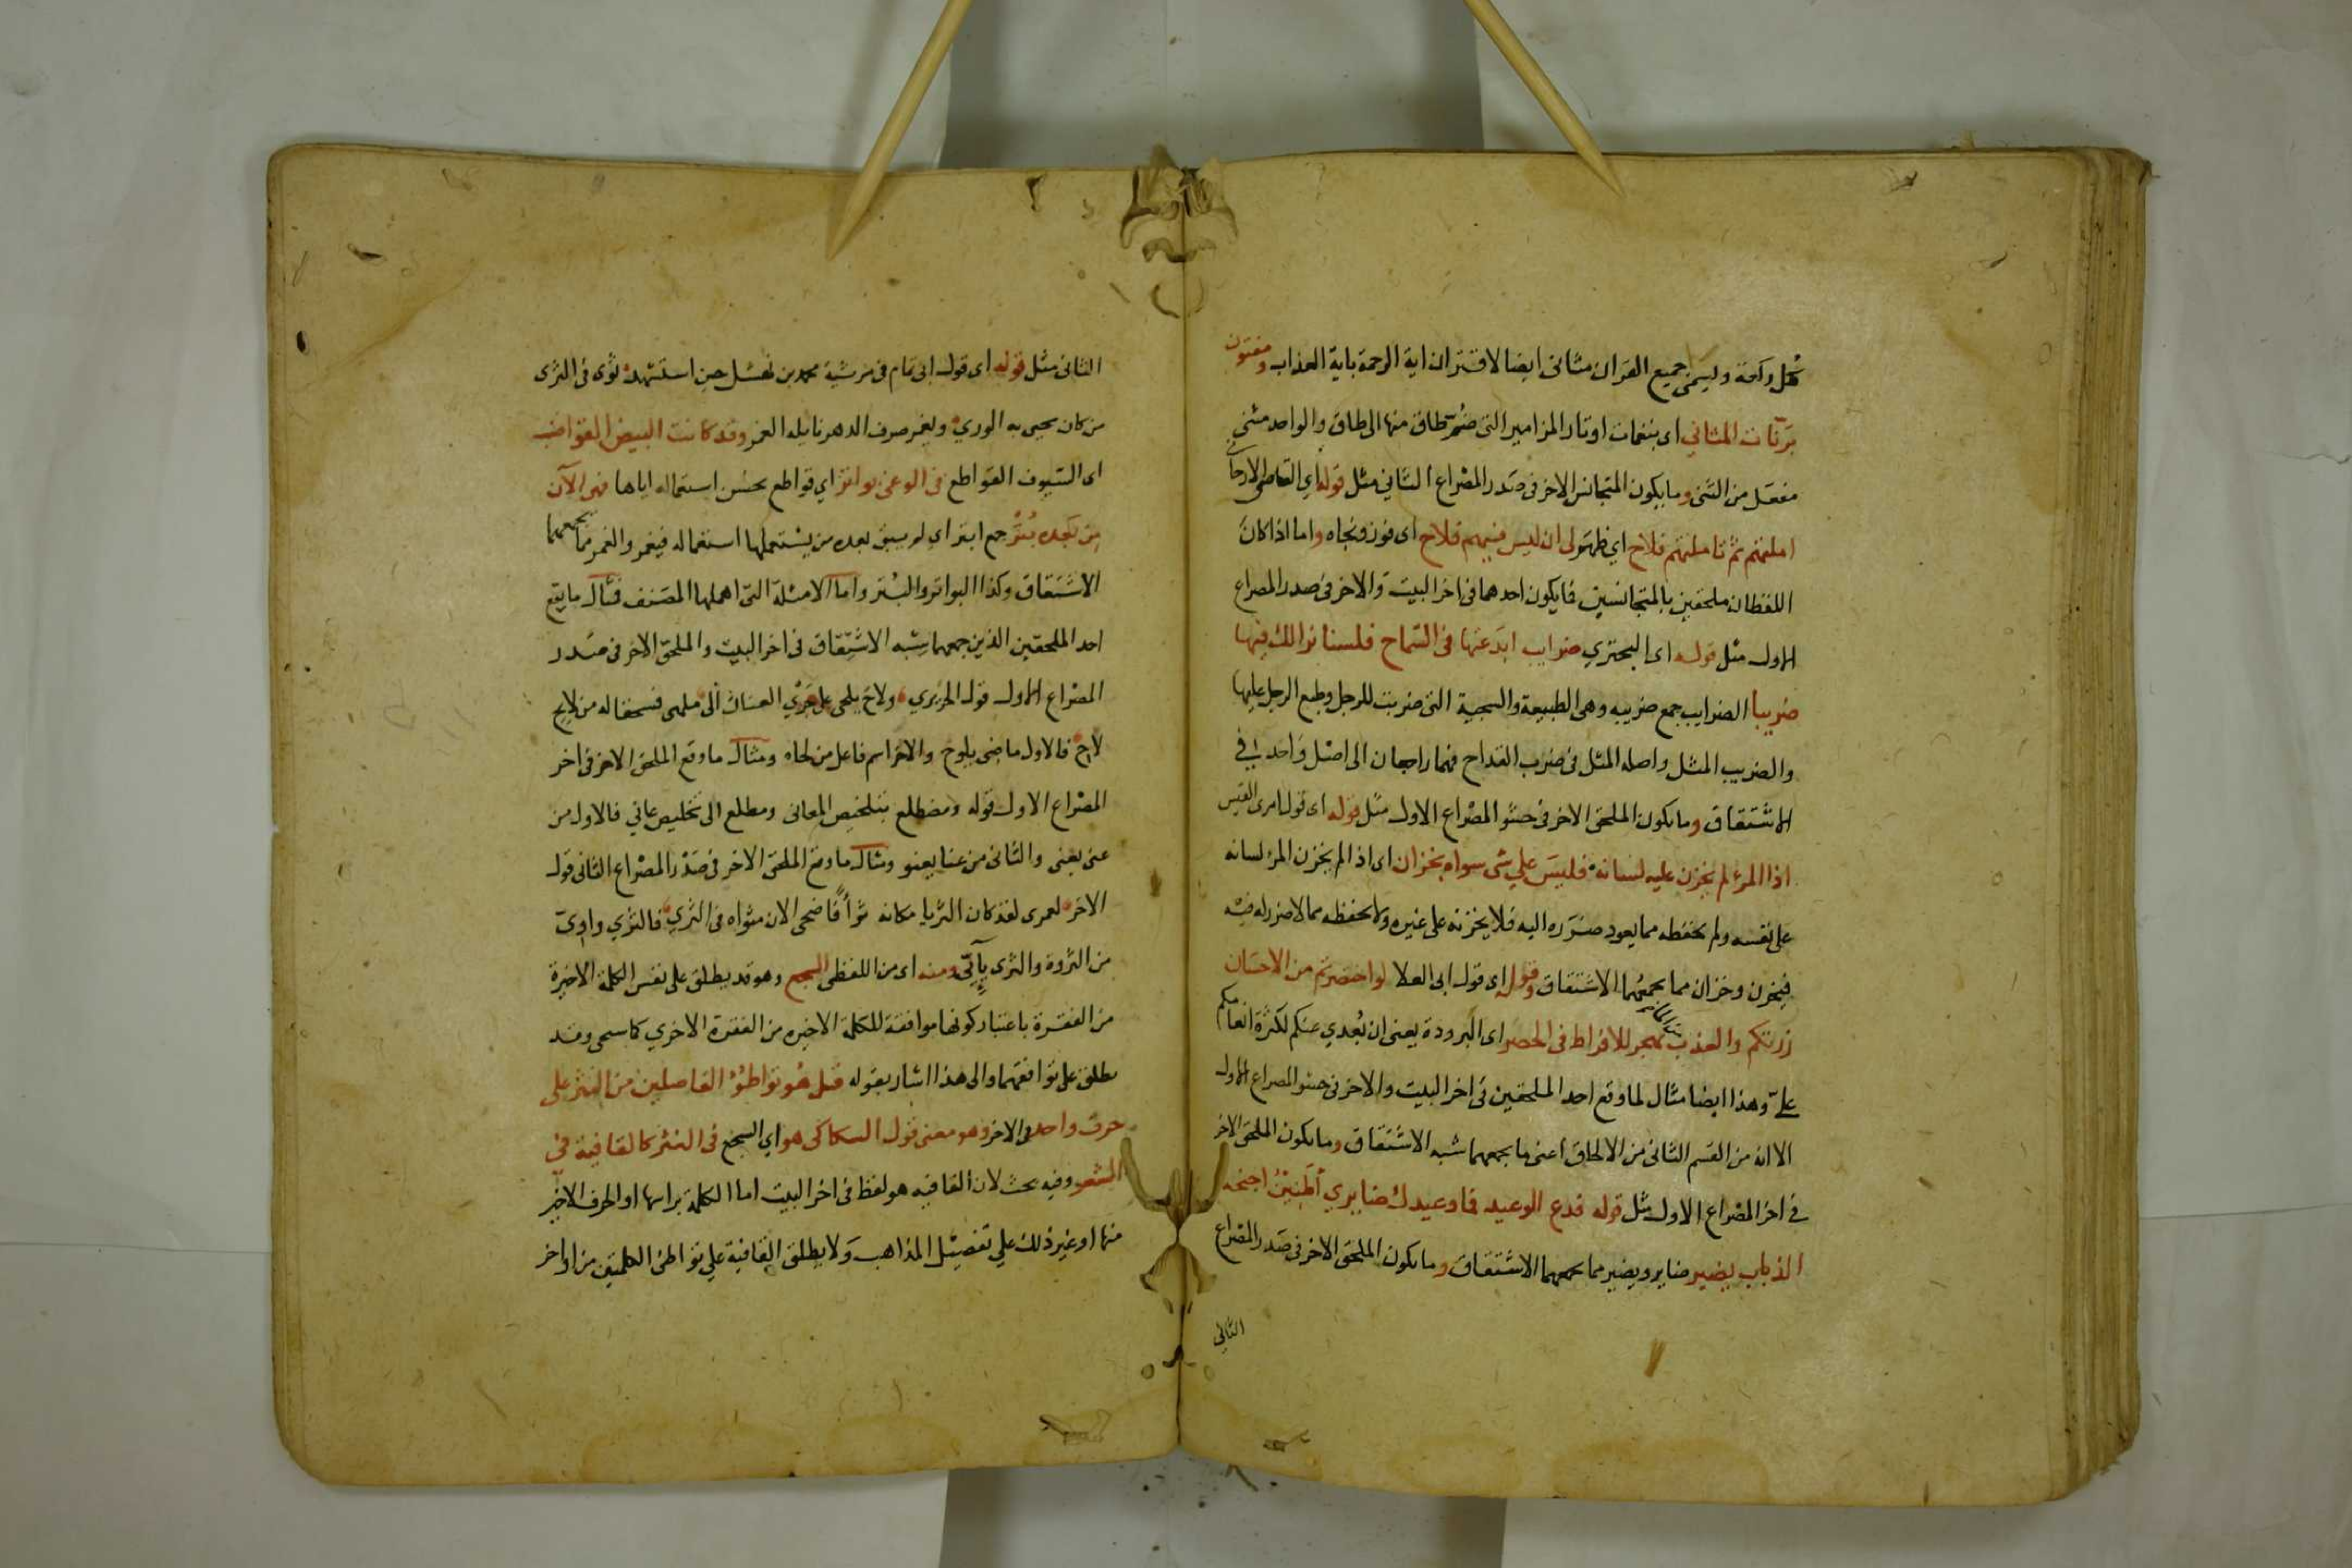 كل ركعة وليسمى جميع القران مثانى ايضا لاقتران اية الرحمة باية العذاب ومفتون
برنات المثاني اى بنغمات اوتار المزامير التى ضم طاق منها الى طاق والواحد مثنى
مفعل من الثنى وما يكون المتجانس الاخر فى صدر المصراع الثاني مثل قوله اي القاضى الارجاني
املتهم ثم تاملتهم فلاح اي ظهر لى ان ليس فيهم فلاح اى فوز ونجاه واما اذا كان
اللفظان ملحقين بالمتجانسين فما يكون احدهما فى اخر البيت والاخر فى صدر المصراع
الاول مثل قوله اى البحتري ضرايب ابدعتها فى السماح فلسنا نرا لك فيها
ضريبا الضرايب جمع ضريبه وهى الطبيعة والسجية التى ضربت للرجل وطبع الرجل عليها
والضريب المثل واصله المثل فى ضرب القداح فهما راجعان الى اصل واحد فى
الاشتقاق وما يكون الملحق الاخر فى حشو المصراع الاول مثل قوله اى قول امرى القيس
اذا المرء لم يخزن عليه لسانه فليس على شى سواه بخزان اى اذا لم يخزن المرء لسانه
على نفسه ولم يحفظه مما يعود ضرره اليه فلا يخزنه على غيره ولا يحفظه مما لا ضرر له فيه
فيخزن وخزان مما يجمعهما الاشتقاق وقوله اى قول ابى العلا لو اختصرتم من الاحسان
زرتكم والعذب يهجر للافراط فى الخصر اى البرودة يعنى ان بعدي عنكم لكثرة انعامكم
على وهذا ايضا مثال لما وقع احد الملحقين فى اخر البيت والاخر فى حشو المصراع الاول
الا انه من القسم الثانى من الالحاق اعنى ما يجمعهما شبه الاشتقاق وما يكون الملحق الاخر
فى اخر المصراع الاول مثل قوله فدع الوعيد فما وعيدك ضايري أطنين اجنحة
الذباب يضير ضاير ويضير مما يجمعهما الاشتقاق وما يكون الملحق الاخر فى صدر المصراع
الثانى
الثانى مثل قوله اى قول ابى تمام فى مرثية محمد بن نهشل حين استشهد ثوى فى الثرى
من كان يحيى به الوري ويغمر صرف الدهر نايله الغمر وقد كانت البيض القواضب
اى السيوف القواطع فى الوغى بواتر اي قواطع بحسن استعماله اياها فهى الآن
من بعده بتر جمع ابتر اي لم يبق بعده من يستعملها استعماله فيغمر والغمر مما يجمعهما
الاشتقاق وكذا البواتر والبتر واما الامثلة التى اهملها المصنف فمثال ما يقع
احد الملحقين الذين جمعهما شبه الاشتقاق فى اخر البيت والملحق الاخر فى صدر
المصراع الاول قول الحريري ولاح يلحى على جري العنان الى ملهى فسحقا له من لايح
لاح فالاول ماضى يلوح والاخر اسم فاعل من لحاه ومثال ما وقع الملحق الاخر فى اخر
المصراع الاول قوله ومضطلع بتلخيص المعانى ومطلع الى تخليص عاني فالاول من
عنى يعنى والثانى من عنا يعنو ومثال ما وقع الملحق الاخر فى صدر المصراع الثانى قول
الاخر لعمرى لقد كان الثريا مكانه ثرأً فاضحى الان مثواه فى الثري فالثري واوى
من الثروة والثرى يآئى ومنه اى من اللفظى السجع وهو قد يطلق على نفس الكلمة الاخيرة
من الفقرة باعتبار كونها موافقة للكلمة الاخيره من الفقرة الاخري كما سجى وقد
يطلق على توافقهما والى هذا اشار بقوله قيل هو تواطؤ الفاصلين من النثر على
حرف واحد فى الاخر وهو معنى قول السكاكى هو اي السجع فى النثر كالقافية في
الشعر وفيه بحث لان القافيه هو لفظ فى اخر البيت اما الكلمة براسها او الحرف الاخير
منها او غير ذلك علي تفصيل المذاهب ولا يطلق القافية علي تواطئ الكلمتين من اواخر